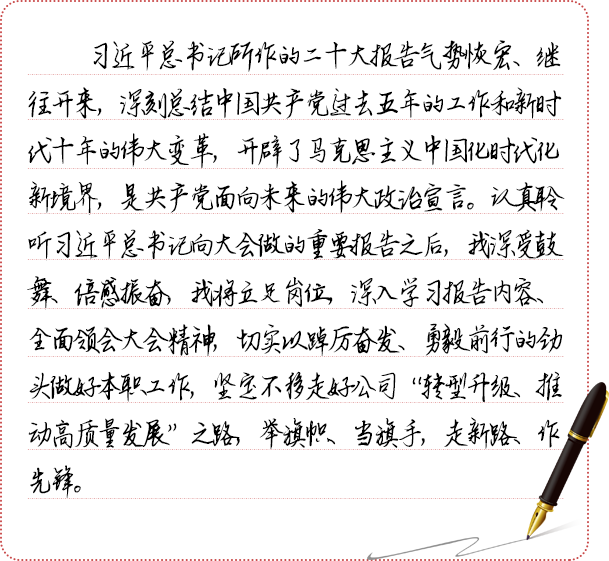 习近平总书记所作的二十大报告气势恢宏、继
往开来，深刻总结中国共产党过去五年的工作和新时
代十年的伟大变革，开辟了马克思主义中国化时代化
新境界，是共产党面向未来的伟大政治宣言。认真聆
听习近平总书记向大会做的重要报告之后，我深受鼓
舞、倍感振奋，我将立足岗位，深入学习报告内容、
全面领会大会精神，切实以踔厉奋发、勇毅前行的劲
头做好本职工作，坚定不移走好公司“转型升级、推
动高质量发展”之路，举旗帜、当旗手，走新路、作
先锋。